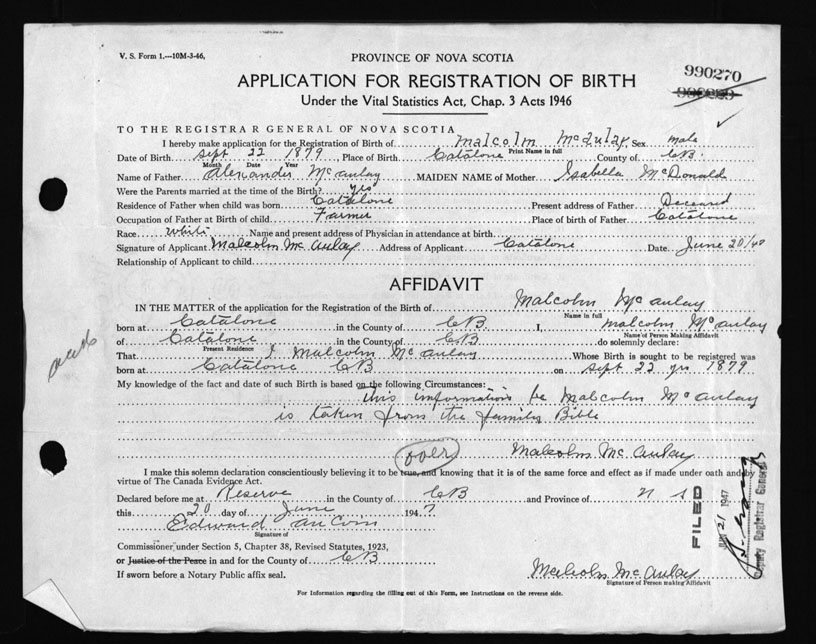 V. S. Form 1.—10M-3-46,
PROVINCE OF NOVA SCOTIA
990270
APPLICATION FOR REGISTRATION OF BIRTH
Under the Vital Statistics Act, Chap. 3 Acts 1946
TO THE REGISTRAR GENERAL OF NOVA SCOTIA
I hereby make application for the Registration of Birth of Malcolm McAulay Sex male
Print Name in full
Date of Birth Sept 22 1879 Place of Birth Catalone County of CB.
Month Date Year
Name of Father Alexander McAulay MAIDEN NAME of Mother Isabella McDonald
Were the Parents married at the time of the Birth? yes
Residence of Father when child was born Catalone Present address of Father Deceased
Occupation of Father at Birth of child Farmer Place of birth of Father Catalone
Race white Name and present address of Physician in attendance at birth
Signature of Applicant Malcolm McAulay Address of Applicant Catalone Date June 20/
Relationship of Applicant to child
AFFIDAVIT
IN THE MATTER of the application for the Registration of the Birth of Malcolm McAulay
Name in full
born at Catalone in the County of CB. I, Malcolm McAulay
Name of Person Making Affidavit
of Catalone in the County of CB do solemnly declare:
Present Residence
That I Malcolm McAulay Whose Birth is sought to be registered was
born at Catalone CB on Sept 22 yrs 1879
My knowledge of the fact and date of such Birth is based on the following Circumstances:
this information be Malcolm McAulay
is taken from the family Bible
over Malcolm McAulay
I make this solemn declaration conscientiously believing it to be true, and knowing that it is of the same force and effect as if made under oath and by
virtue of The Canada Evidence Act.
Declared before me at Reserve in the County of CB and Province of N S
this 20 day of June 1947
Edward AuCoin
Signature of
Commissioner under Section 5, Chapter 38, Revised Statutes, 1923,
or Justice of the Peace in and for the County of CB
If sworn before a Notary Public affix seal.
Malcolm McAulay
Signature of Person making Affidavit
For Information regarding the filling out of this Form, see Instructions on the reverse side.
FILED
21 1947
Deputy Registrar General